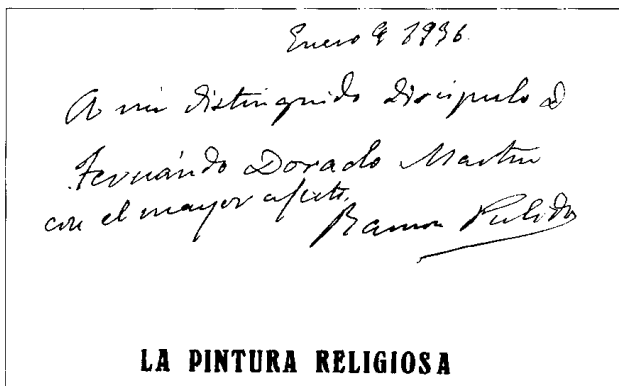 Enero 9 1936.
A mi distinguido discípulo D
Fernándo Dorado Martin
con el mayor afecto,
Ramon Pulido
LA PINTURA RELIGIOSA